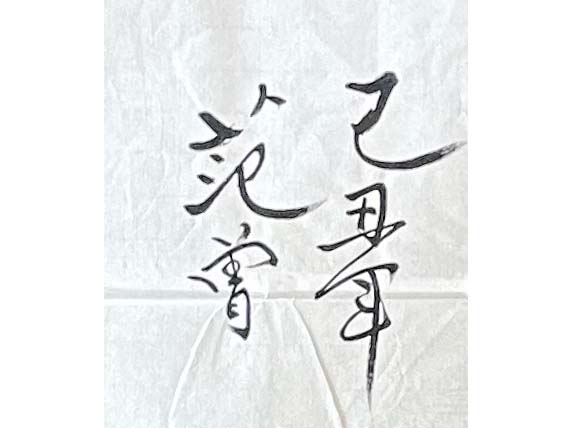 己丑年
范曾